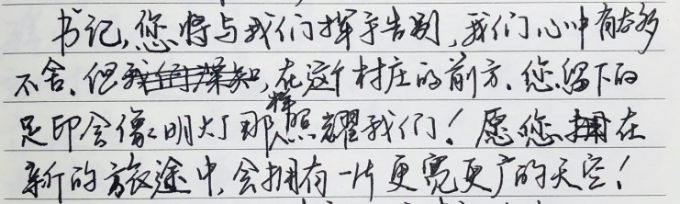 书记,您将与我们挥手告别,我们心中有太多
不舍。但在这个村庄的前方,您留下的
足印会像明灯那样照耀我们!愿您在
新的旅途中,会拥有一片更宽更广的天空!